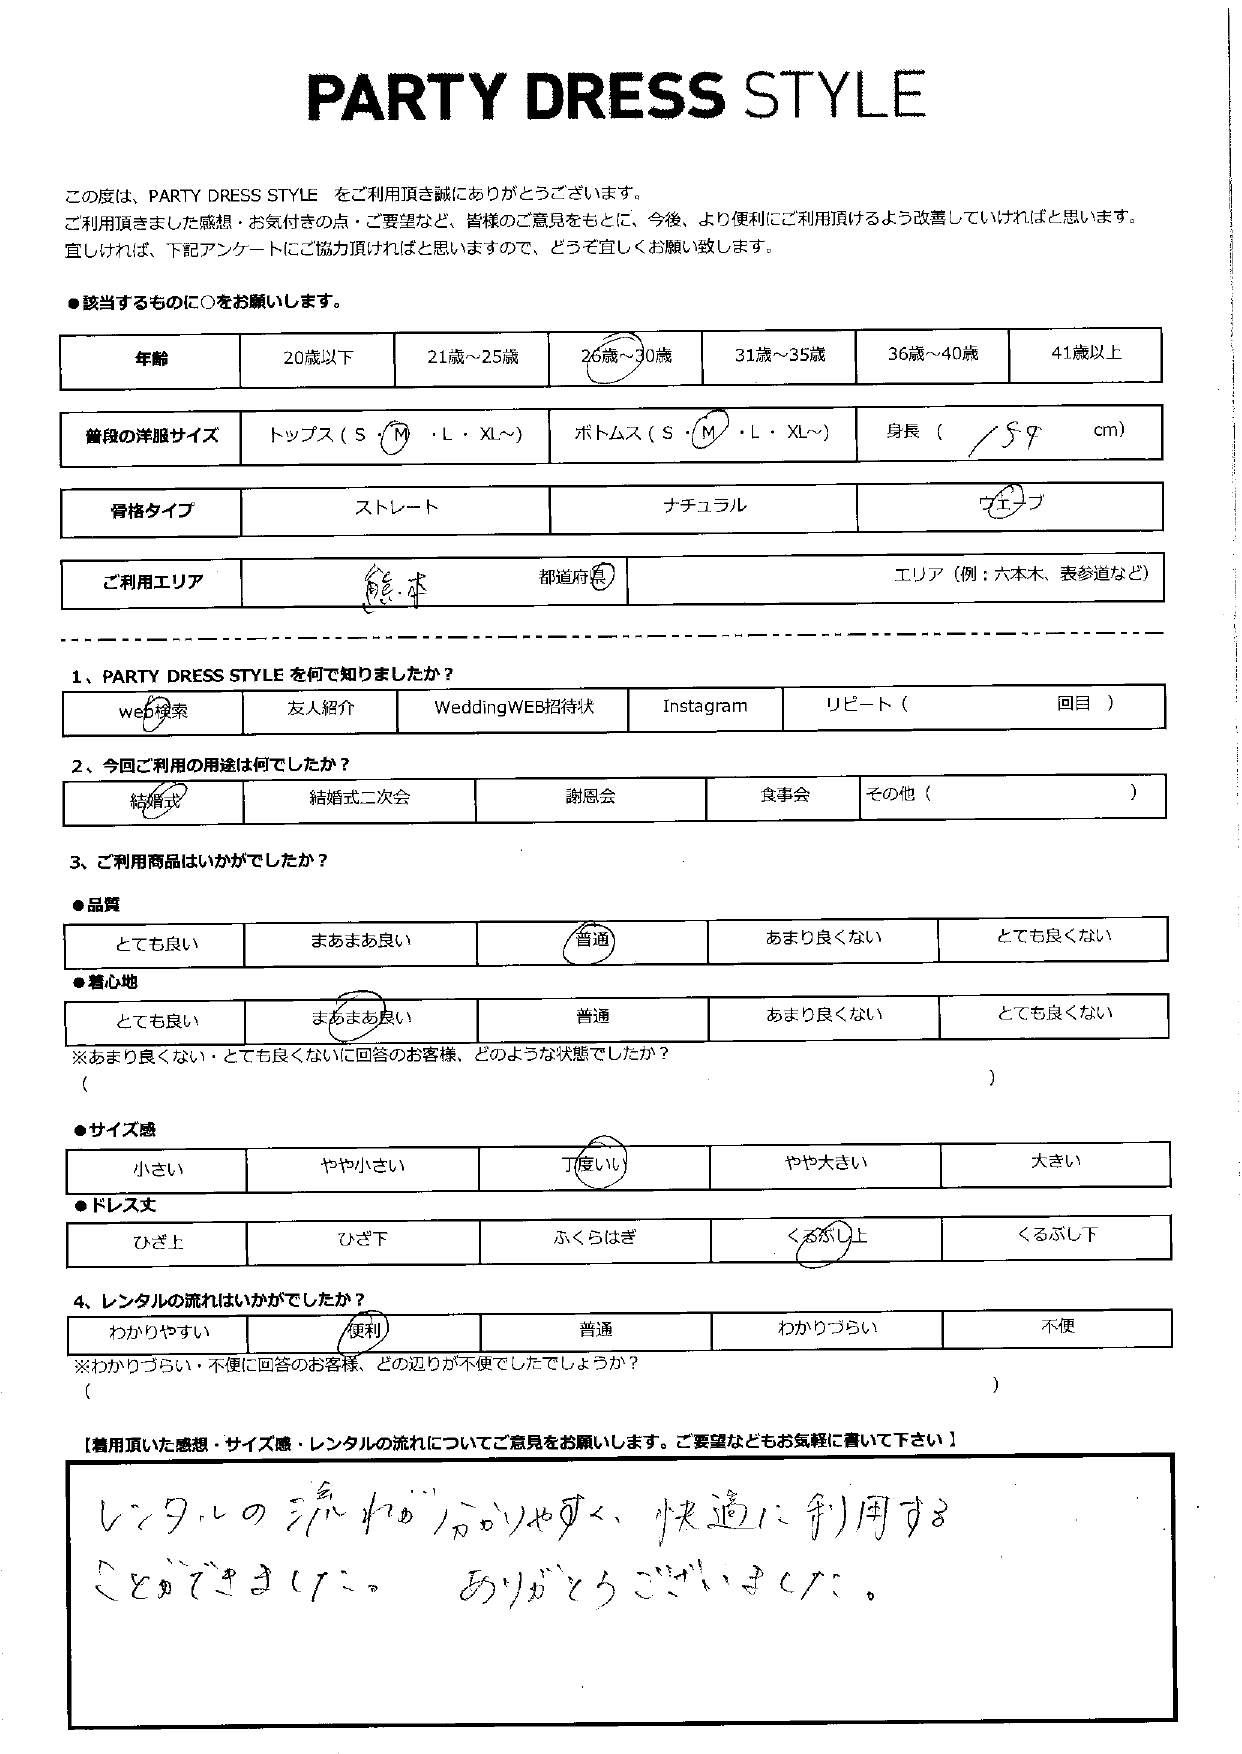 PARTY DRESS STYLE
この度は、PARTY DRESS STYLE をご利用頂き誠にありがとうございます。
ご利用頂きました感想・お気付きの点・ご要望など、皆様のご意見をもとに、今後、より便利にご利用頂けるよう改善していければと思います。
宜しければ、下記アンケートにご協力頂ければと思いますので、どうぞ宜しくお願い致します。
●該当するものに○をお願いします。
年齢 20歳以下 21歳～25歳 26歳～30歳 31歳～35歳 36歳～40歳 41歳以上
普段の洋服サイズ トップス ( S ・ M ・ L ・ XL～) ボトムス ( S ・ M ・ L ・ XL～) 身長 ( 159 cm)
骨格タイプ ストレート ナチュラル ウェーブ
ご利用エリア 熊本 都道府県 エリア（例：六本木、表参道など）
1、PARTY DRESS STYLE を何で知りましたか？
web検索 友人紹介 WeddingWEB招待状 Instagram リピート ( 回目 )
2、今回ご利用の用途は何でしたか？
結婚式 結婚式二次会 謝恩会 食事会 その他 ( )
3、ご利用商品はいかがでしたか？
●品質
とても良い まあまあ良い 普通 あまり良くない とても良くない
●着心地
とても良い まあまあ良い 普通 あまり良くない とても良くない
※あまり良くない・とても良くないに回答のお客様、どのような状態でしたか？
( )
●サイズ感
小さい やや小さい 丁度いい やや大きい 大きい
●ドレス丈
ひざ上 ひざ下 ふくらはぎ くるぶし上 くるぶし下
4、レンタルの流れはいかがでしたか？
わかりやすい 便利 普通 わかりづらい 不便
※わかりづらい・不便に回答のお客様、どの辺りが不便でしたでしょうか？
( )
【着用頂いた感想・サイズ感・レンタルの流れについてご意見をお願いします。ご要望などもお気軽に書いて下さい】
レンタルの流れが分かりやすく、快適に利用する
ことができました。 ありがとうございました。